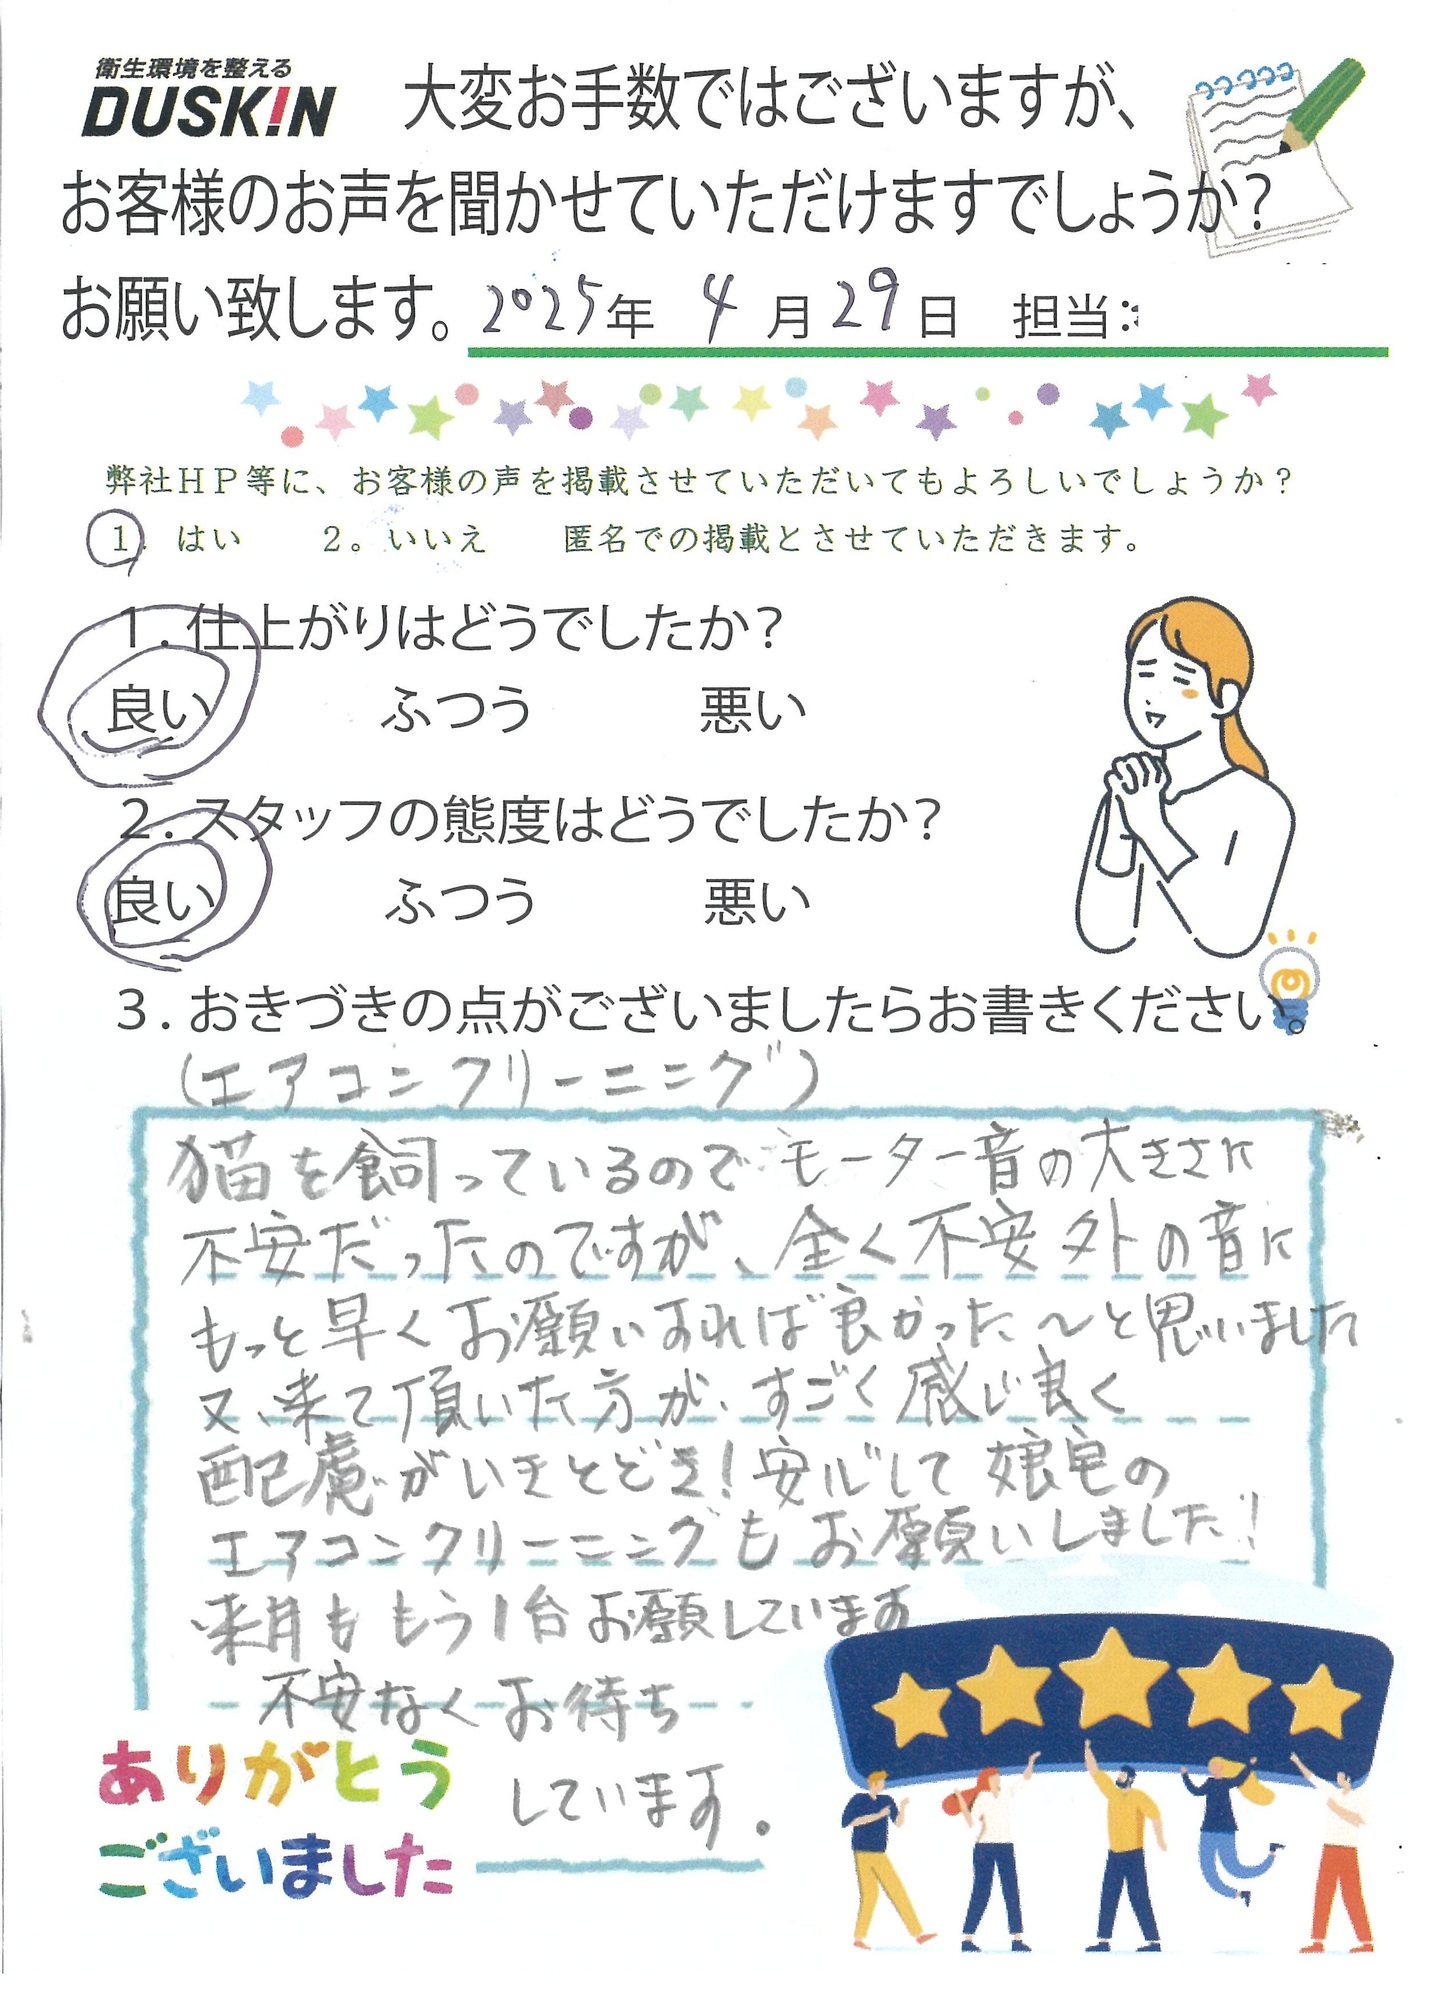 衛生環境を整える
DUSKIN
大変お手数ではございますが、
お客様のお声を聞かせていただけますでしょうか？
お願い致します。 2025年 4月29日 担当：
弊社ＨＰ等に、お客様の声を掲載させていただいてもよろしいでしょうか？
1. はい 2。いいえ 匿名での掲載とさせていただきます。
1. 仕上がりはどうでしたか？
良い ふつう 悪い
2. スタッフの態度はどうでしたか？
良い ふつう 悪い
3. おきづきの点がございましたらお書きください。
(エアコンクリーニニング)
猫を飼っているのでモーター音の大きさに
不安だったのですが、全く不安外の音に
もっと早くお願いすれば良かった〜と思いました
又、来て頂いた方が、すごく感じ良く
配慮がいきとどき!安心して娘宅の
エアコンクリーニングもお願いしました!
来月ももう1台お願しています
不安なくお待ち
しています.
ありがとう
ございました